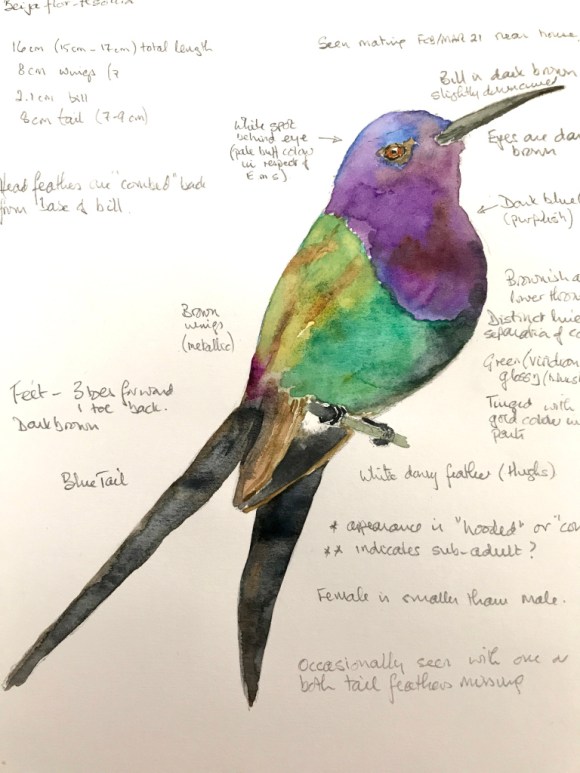 Beija flor-tesoura
16cm (15cm-17cm) total length
8cm wings (7
2.1cm bill
8cm tail (7-9cm)
Seen mating FEB/MAR 21 near house
Bill is dark brown
slightly downcurved
White spot
behind eye
(pale buff colour
in respect of
E m s)
Eyes are dar
brown
Head feathers are "combed" back
from base of bill.
Dark blue
(purplish)
Brownish a
lower thro
Distinct line
separation of co
Green (viridean
glossy (blues
Tinged with
gold color in
parts
Brown
wings
(metallic)
Feet - 3 toes forward
1 toe back.
Dark brown
Blue Tail
White downy feather (thighs)
* appearance is "hooded" or "co
** indicates sub-adult?
Female is smaller than male.
Occasionally seen with one or
both tail feathers missing